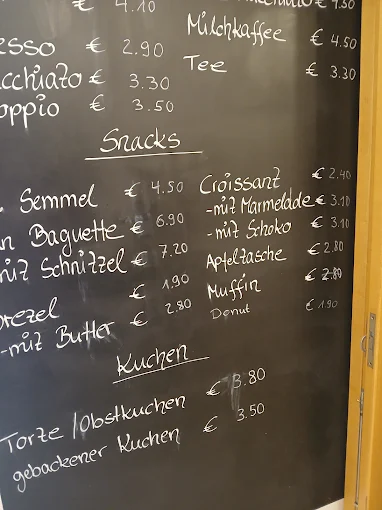 € 4.10
€ 4.50
Milchkaffee € 4.50
Tee € 3.30
esso € 2.90
cchiato € 3.30
oppio € 3.50
Snacks
Semmel € 4.50
n Baguette € 6.90
mit Schnitzel € 7.20
€ 1.90
Brezel
-mit Butter € 2.80
Croissant € 2.40
-mit Marmelade € 3.10
-mit Schoko € 3.10
Apfeltasche € 2.80
Muffin € 2.80
Donut € 1.90
Kuchen
Torte /Obstkuchen € 3.80
gebackener Kuchen € 3.50